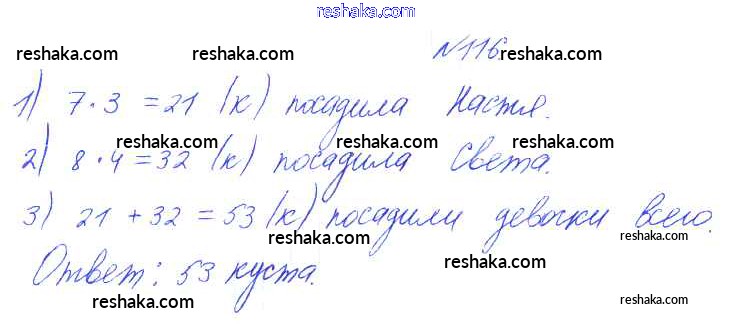 reshaka.com
№116.
reshaka.com reshaka.com reshaka.com
1) 7·3 = 21 (к) посадила Настя.
reshaka.com reshaka.com
2) 8·4 = 32 (к) посадила Света.
3) 21 + 32 = 53 (к) посадили девочки всего.
reshaka.com reshaka.com
Ответ: 53 куста.
reshaka.com
reshaka.com reshaka.com